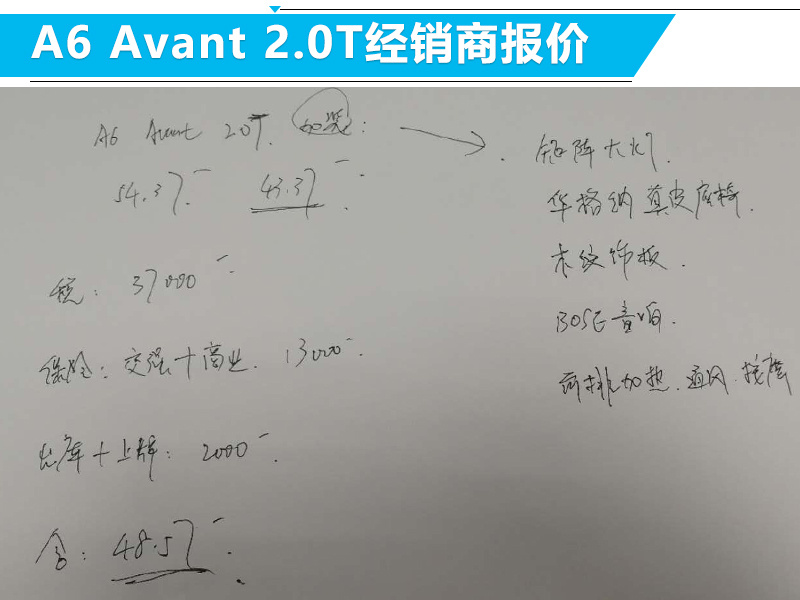 A6 Avant 2.0T经销商报价
A6 Avant 2.0T. 加装:
54.37. 43.37.
税: 37000.
保险: 交强+商业. 13000.
出库+上牌: 2000.
合: 48.57.
矩阵大灯.
华格纳真皮座椅.
木纹饰板.
BOSE音响.
前排加热.通风.按摩